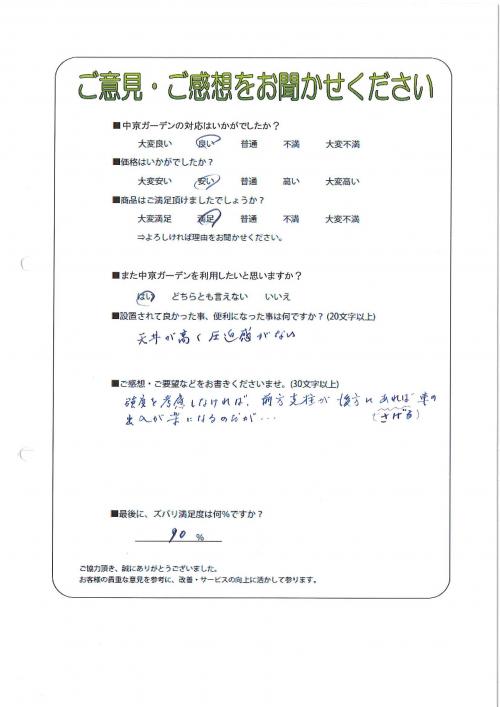 ご意見・ご感想をお聞かせください
■中京ガーデンの対応はいかがでしたか？
大変良い 良い 普通 不満 大変不満
■価格はいかがでしたか？
大変安い 安い 普通 高い 大変高い
■商品はご満足頂けましたでしょうか？
大変満足 満足 普通 不満 大変不満
⇒よろしければ理由をお聞かせください。
■また中京ガーデンを利用したいと思いますか？
はい どちらとも言えない いいえ
■設置されて良かった事、便利になった事は何ですか？(20文字以上)
天井が高く圧迫感がない
■ご感想・ご要望などをお書きくださいませ。(30文字以上)
強度を考慮しなければ、前方支柱が後方にあれば車の
出入が楽になるのだが… (さげる)
■最後に、ズバリ満足度は何％ですか？
90 %
ご協力頂き、誠にありがとうございました。
お客様の貴重な意見を参考に、改善・サービスの向上に活かして参ります。